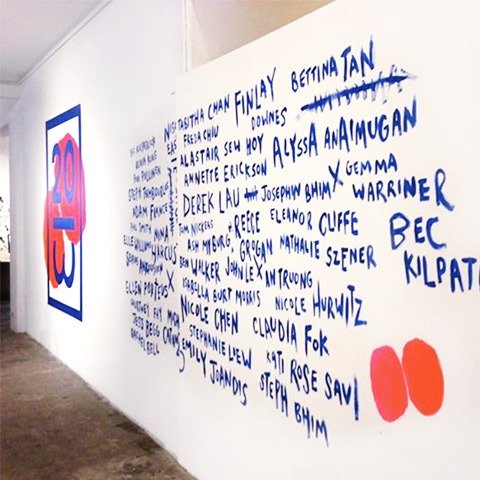 2013
TABITHA CHAN FINLAY BETTINA TAN
FREDA CHIU DOWNES
ALASTAIR SEW HOY ALYSSA ANAIMUGAN
ANNETTE ERICKSON GEMMA
DEREK LAU JOSEPHIN BHIM X WARRINER
TOM NICKENS REECE ELEANOR CLIFFE BEC
ASH MYBURG GROGAN NATHALIE SZENER KILPAT
BEN WALKER JOHN LE X AN TRUONG
ISABELLA BURT MORRIS NICOLE HURWITZ
NICOLE CHEN CLAUDIA FOK
STEPHANIE LIEW KATI ROSE SAVI
EMILY JOANDIS STEPH BHIM
ADAM
NINA
ELLEN PORTEUS X
JESS
RACHAEL BELL